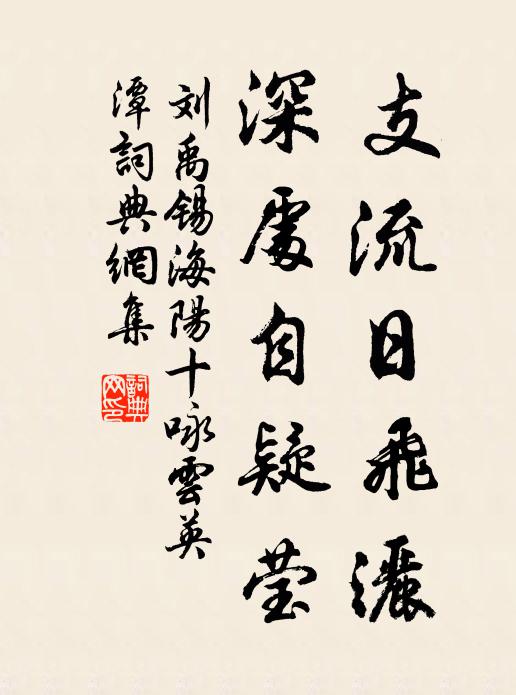 支流日飛灑
深處自疑莹
刘禹锡海陽十咏雲英
潭詞典網集
詞典网印